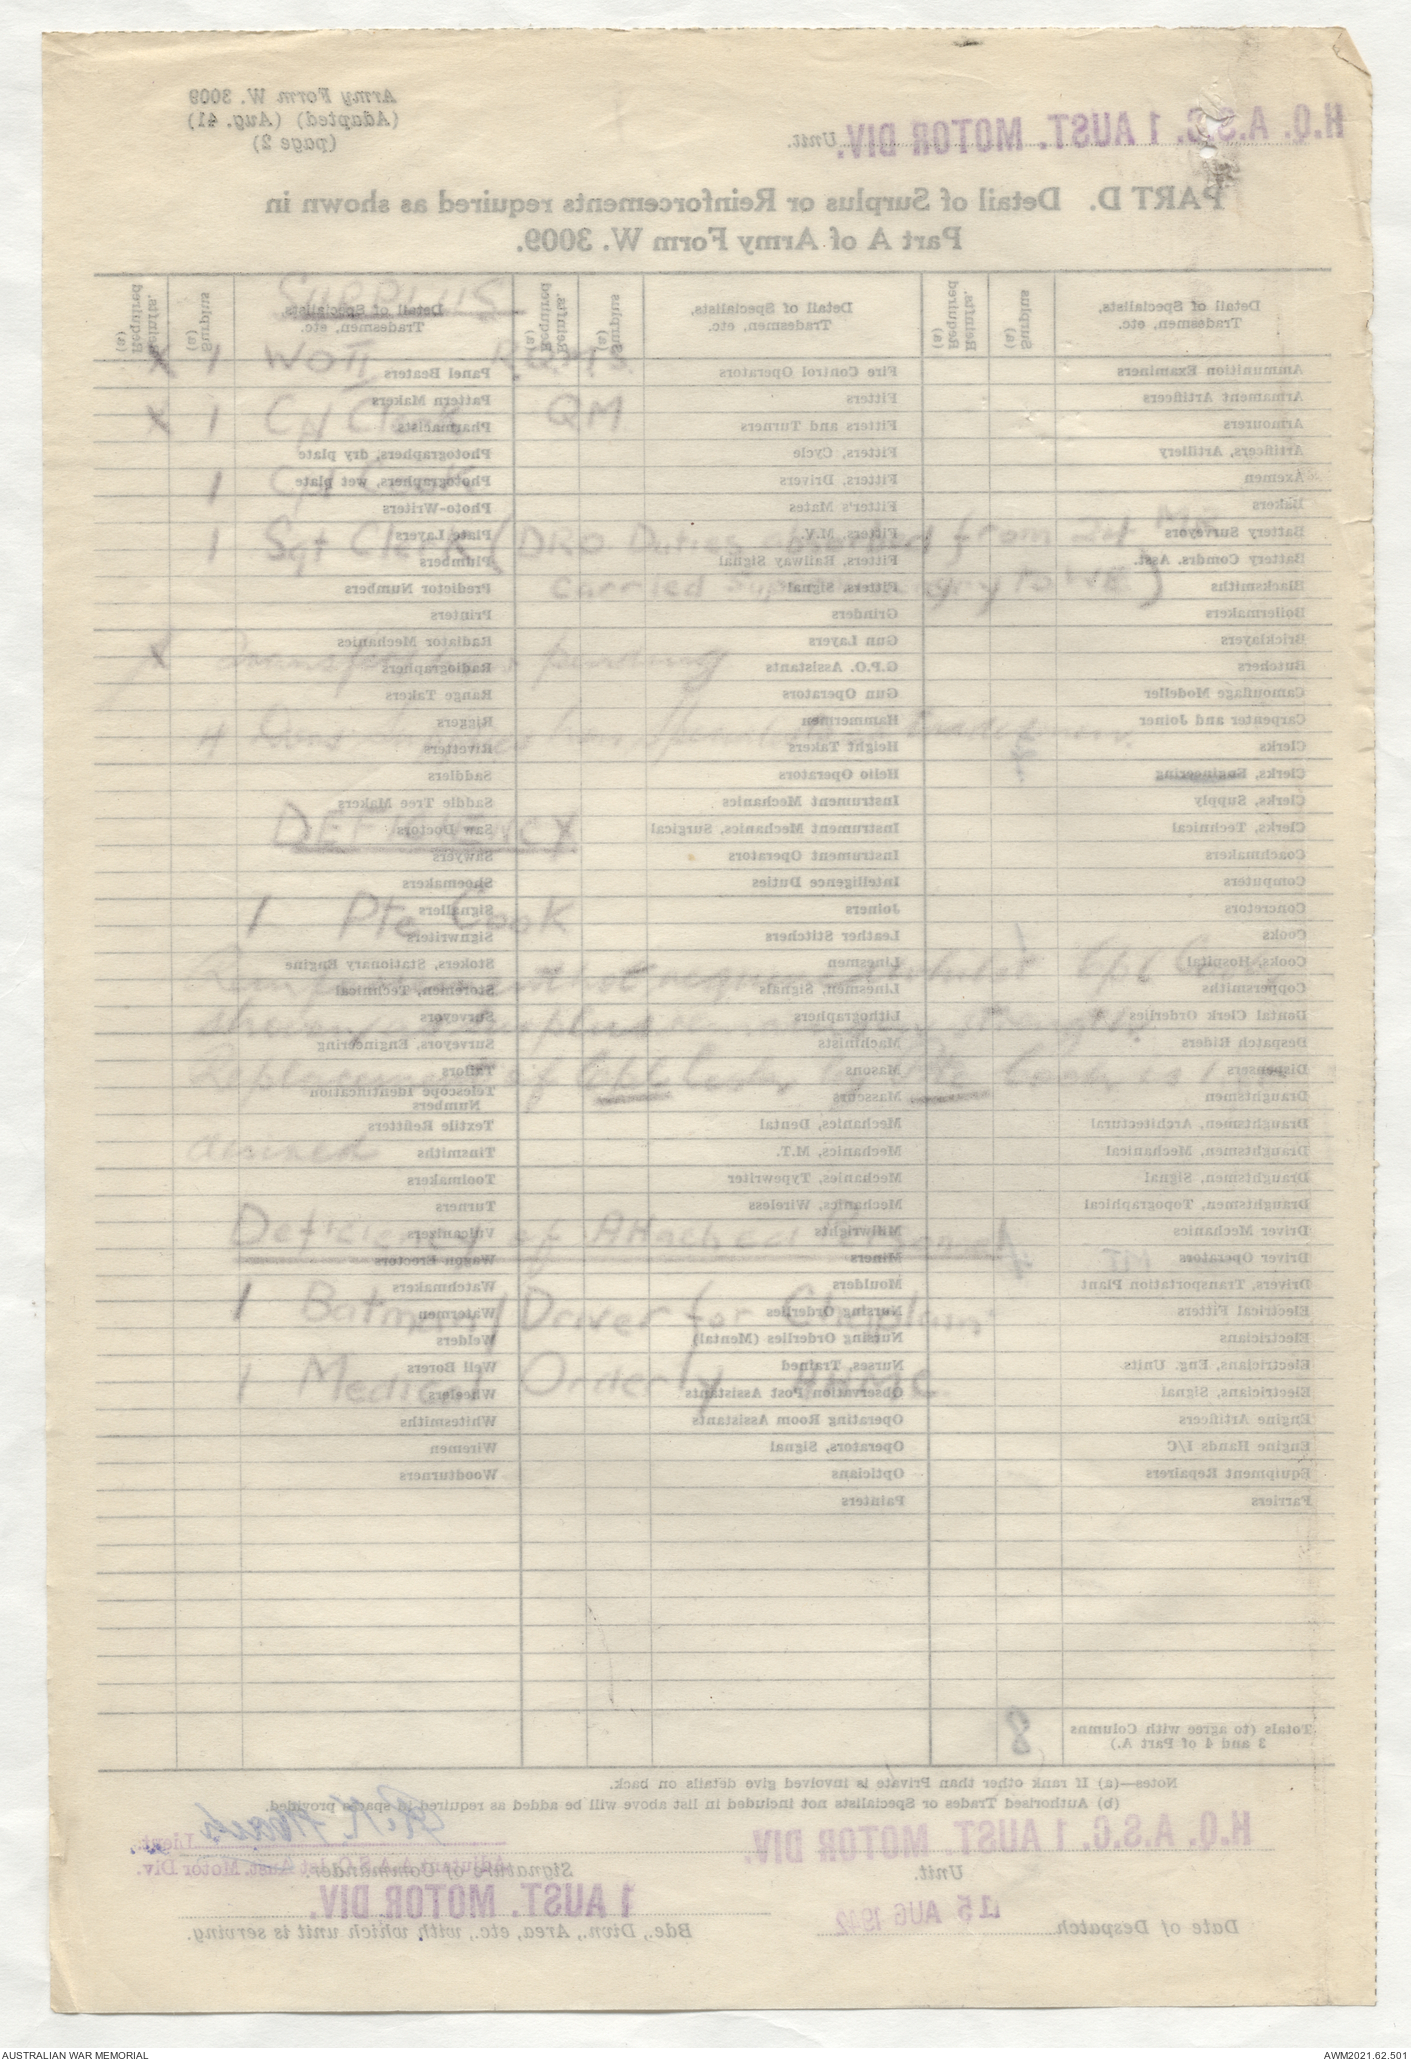 SURPLUS
X 1 WOII RQMS.
X 1 Cpl Clerk QM
1 Cpl Cook
1 Sgt Clerk (DRO Duties absorbed from 24 MR
carried Supernumerary to WE)
X pending
4
DEFICIENCY
1 Pte Cook
Reinforcement not required whilst Cpl Cook,
shown as surplus remains on strength.
Replacement of Cpl Cook by Pte Cook is
desired
Deficiency of Attached Personnel
1 Batman/Driver for Chaplain
1 Medical Orderly AAMC.
Army Form W. 3009
(Adapted) (Aug. 41)
(page 2)
H.Q. A.S.C. 1 AUST. MOTOR DIV. Unit.
PART D. Detail of Surplus or Reinforcements required as shown in
Part A of Army Form W. 3009.
Detail of Specialists, Tradesmen, etc. Surplus (a) Required Reinfts. (a) Detail of Specialists, Tradesmen, etc. Surplus (a) Required Reinfts. (a) Detail of Specialists, Tradesmen, etc. Surplus (a) Required Reinfts. (a)
Ammunition Examiners Fire Control Operators Panel Beaters
Armament Artificers Fitters Pattern Makers
Armourers Fitters and Turners Pharmacists
Artificers, Artillery Fitters, Cycle Photographers, dry plate
Axemen Fitters, Drivers Photographers, wet plate
Bakers Fitter's Mates Photo-Writers
Battery Surveyors Fitters, M.V. Plate Layers
Battery Comdrs. Asst. Fitters, Railway Signal Plumbers
Blacksmiths Fitters, Signal Predictor Numbers
Boilermakers Grinders Printers
Bricklayers Gun Layers Radiator Mechanics
Butchers G.P.O. Assistants Radiographers
Camouflage Modeller Gun Operators Range Takers
Carpenter and Joiner Hammermen Riggers
Clerks Height Takers Rivetters
Clerks, Engineering Helio Operators Saddlers
Clerks, Supply Instrument Mechanics Saddle Tree Makers
Clerks, Technical Instrument Mechanics, Surgical Saw Doctors
Coachmakers Instrument Operators Sawyers
Computers Intelligence Duties Shoemakers
Concretors Joiners Signallers
Cooks 1 Leather Stitchers Signwriters
Cooks, Hospital Linesmen Stokers, Stationary Engine
Coppersmiths Linesmen, Signals Storemen, Technical
Dental Clerk Orderlies Lithographers Surveyors
Despatch Riders Machinists Surveyors, Engineering
Dispensers Masons Tailors
Draughtsmen Masseurs Telescope Identification Numbers
Draughtsmen, Architectural Mechanics, Dental Textile Refitters
Draughtsmen, Mechanical Mechanics, M.T. Tinsmiths
Draughtsmen, Signal Mechanics, Typewriter Toolmakers
Draughtsmen, Topographical Mechanics, Wireless Turners
Driver Mechanics Millwrights Vulcanizers
Driver Operators MT Miners Wagon Erectors
Drivers, Transportation Plant Moulders Watchmakers
Electrical Fitters Nursing Orderlies Watermen
Electricians Nursing Orderlies (Mental) Welders
Electricians, Eng. Units Nurses, Trained Well Borers
Electricians, Signal Observation Post Assistants Wheelers
Engine Artificers Operating Room Assistants Whitesmiths
Engine Hands I/C Operators, Signal Wiremen
Equipment Repairers Opticians Woodturners
Farriers Painters
Totals (to agree with Columns 3 and 4 of Part A.) 8
Notes—(a) If rank other than Private is involved give details on back.
(b) Authorised Trades or Specialists not included in list above will be added as required in spaces provided.
H.Q. A.S.C. 1 AUST. MOTOR DIV. Lieut.
Unit. Signature of Commander. Adjutant A.A.S.C. 1st Aust. Motor Div.
Date of Despatch 15 AUG 1942 1 AUST. MOTOR DIV.
Bde., Divn., Area, etc., with which unit is serving.
AUSTRALIAN WAR MEMORIAL
AWM2021.62.501